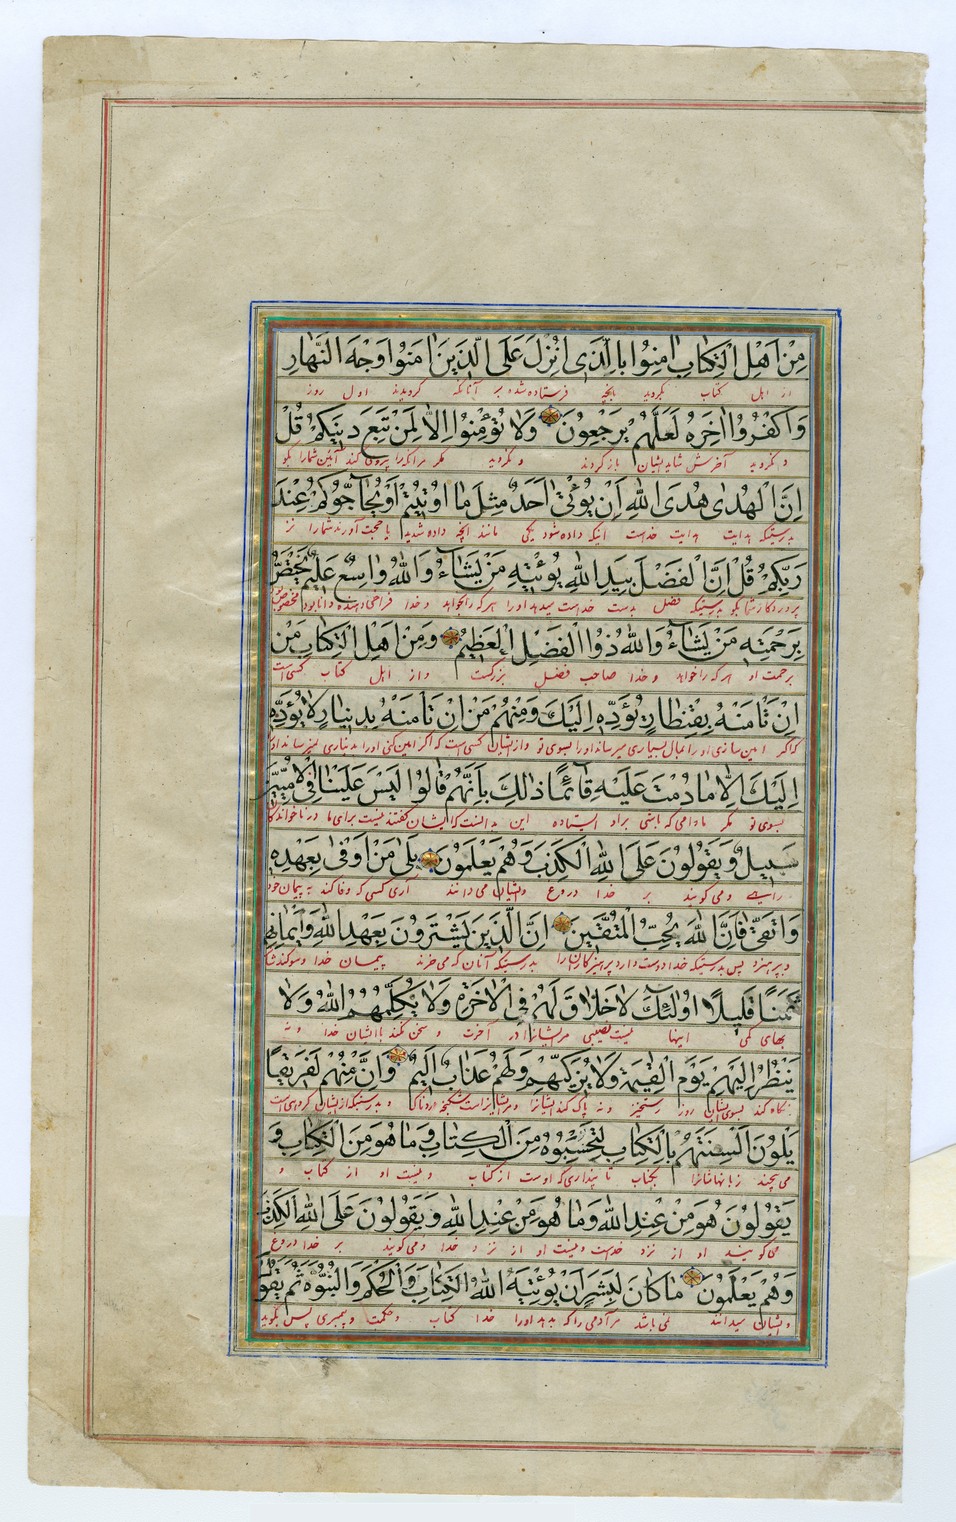 مِنْ اَهْلِ الْكِتَابِ اٰمِنُوا بِالَّذِى اُنْزِلَ عَلَى الَّذِينَ اٰمَنُوا وَجْهَ النَّهَارِ
از اهل كتاب بگرويد بانچه فرستاده شده بر آنانكه گرويدند اول روز
وَاكْفُرُوا اٰخِرَهُ لَعَلَّهُمْ يَرْجِعُونَ وَلَا تُؤْمِنُوا اِلَّا لِمَنْ تَبِعَ دِينَكُمْ قُلْ
و نگرويد آخرش شايد ايشان باز گردند و نگرويد مگر مر آنكه را پيروى كند آئين شما را بگو
اِنَّ الْهُدٰى هُدَى اللّٰهِ اَنْ يُؤْتٰى اَحَدٌ مِثْلَ مَا اُوتِيتُمْ اَوْ يُحَاجُّوكُمْ عِنْدَ
بدرستيكه هدايت هدايت خداست اينكه داده شود يكى مانند انچه داده شديد يا حجت آورند شما را نزد
رَبِّكُمْ قُلْ اِنَّ الْفَضْلَ بِيَدِ اللّٰهِ يُؤْتِيهِ مَنْ يَشَاءُ وَاللّٰهُ وَاسِعٌ عَلِيمٌ يَخْتَصُّ
پروردگار شما بگو بدرستيكه فضل بدست خداست ميدهد اورا هر كه را خواهد و خدا فراخى دهنده دانا بود
بِرَحْمَتِهِ مَنْ يَشَاءُ وَاللّٰهُ ذُوا الْفَضْلِ الْعَظِيمِ وَمِنْ اَهْلِ الْكِتَابِ مَنْ
برحمت او هر كه را خواهد و خدا صاحب فضل بزرگست و از اهل كتاب كسى است
اِنْ تَأْمَنْهُ بِقِنْطَارٍ يُؤَدِّهِ اِلَيْكَ وَمِنْهُمْ مَنْ اِنْ تَأْمَنْهُ بِدِينَارٍ لَا يُؤَدِّهِ
كه اگر امين سازى اورا بمال بسيارى ميرساند اورا بسوى تو و از ايشان كسى است كه اگر امين كنى اورا بدينارى نميرساند
اِلَيْكَ اِلَّا مَا دُمْتَ عَلَيْهِ قَائِمًا ذٰلِكَ بِاَنَّهُمْ قَالُوا لَيْسَ عَلَيْنَا فِى الْاُمِّيِّينَ
بسوى تو مگر مادامى كه باشى براو ايستاده اين بدانست كه ايشان گفتند نيست براى ما در ناخواندگان
سَبِيلٌ وَيَقُولُونَ عَلَى اللّٰهِ الْكَذِبَ وَهُمْ يَعْلَمُونَ بَلٰى مَنْ اَوْفٰى بِعَهْدِهِ
راهى و مى گويند بر خدا دروغ و ايشان مى دانند آرى كسى كه وفا كند به پيمان خود
وَاتَّقٰى فَاِنَّ اللّٰهَ يُحِبُّ الْمُتَّقِينَ اِنَّ الَّذِينَ يَشْتَرُونَ بِعَهْدِ اللّٰهِ وَاَيْمَانِهِمْ
و بپرهيزد پس بدرستيكه خدا دوست دارد پرهيزكاران را بدرستيكه آنان كه مى خرند پيمان خدا و سوگندشان
ثَمَنًا قَلِيلًا اُولٰئِكَ لَا خَلَاقَ لَهُمْ فِى الْاٰخِرَةِ وَلَا يُكَلِّمُهُمُ اللّٰهُ وَلَا
بهاى كمى اينها نيست نصيبى مر ايشانرا در آخرت و سخن نكند با ايشان خدا و نه
يَنْظُرُ اِلَيْهِمْ يَوْمَ الْقِيٰمَةِ وَلَا يُزَكِّيهِمْ وَلَهُمْ عَذَابٌ اَلِيمٌ وَاِنَّ مِنْهُمْ لَفَرِيقًا
نگاه كند بسوى ايشان روز رستخيز و نه پاك كند ايشانرا و مر ايشانراست شكنجه دردناك و بدرستيكه از ايشان گروهى است
يَلْوُونَ اَلْسِنَتَهُمْ بِالْكِتَابِ لِتَحْسَبُوهُ مِنَ الْكِتَابِ وَمَا هُوَ مِنَ الْكِتَابِ وَ
مى پيچند زبانهاشانرا بكتاب تا پندارى كه اوست از كتاب و نيست او از كتاب و
يَقُولُونَ هُوَ مِنْ عِنْدِ اللّٰهِ وَمَا هُوَ مِنْ عِنْدِ اللّٰهِ وَيَقُولُونَ عَلَى اللّٰهِ الْكَذِبَ
مى گويند او از نزد خداست و نيست او از نزد خدا و مى گويند بر خدا دروغ
وَهُمْ يَعْلَمُونَ مَا كَانَ لِبَشَرٍ اَنْ يُؤْتِيَهُ اللّٰهُ الْكِتَابَ وَالْحُكْمَ وَالنُّبُوَّةَ ثُمَّ يَقُولَ
و ايشان ميدانند نمى باشد مر آدمى را كه بدهد اورا خدا كتاب و حكمت و پيمبرى پس بگويد